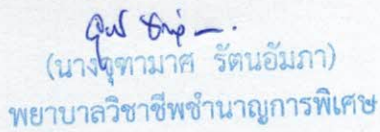 (นางจุฑามาศ รัตนอัมภา)
พยาบาลวิชาชีพชำนาญการพิเศษ